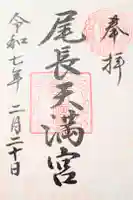 奉拝
尾長天満宮
令和七年二月二十日